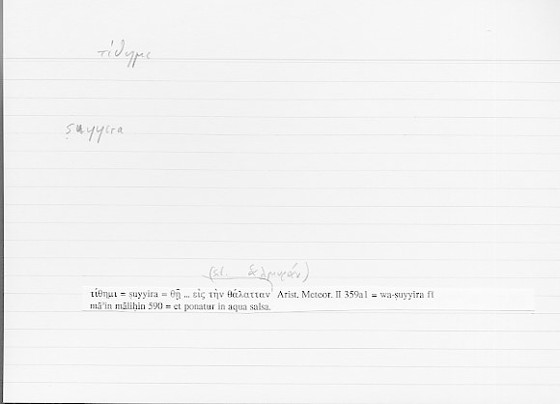 τίθημι
ṣuyyira
τίθημι = ṣuyyira = θῇ ... εἰς τὴν θάλατταν Arist. Meteor. II 359a1 = wa-ṣuyyira fī
māʾin māliḥin 590 = et ponatur in aqua salsa.